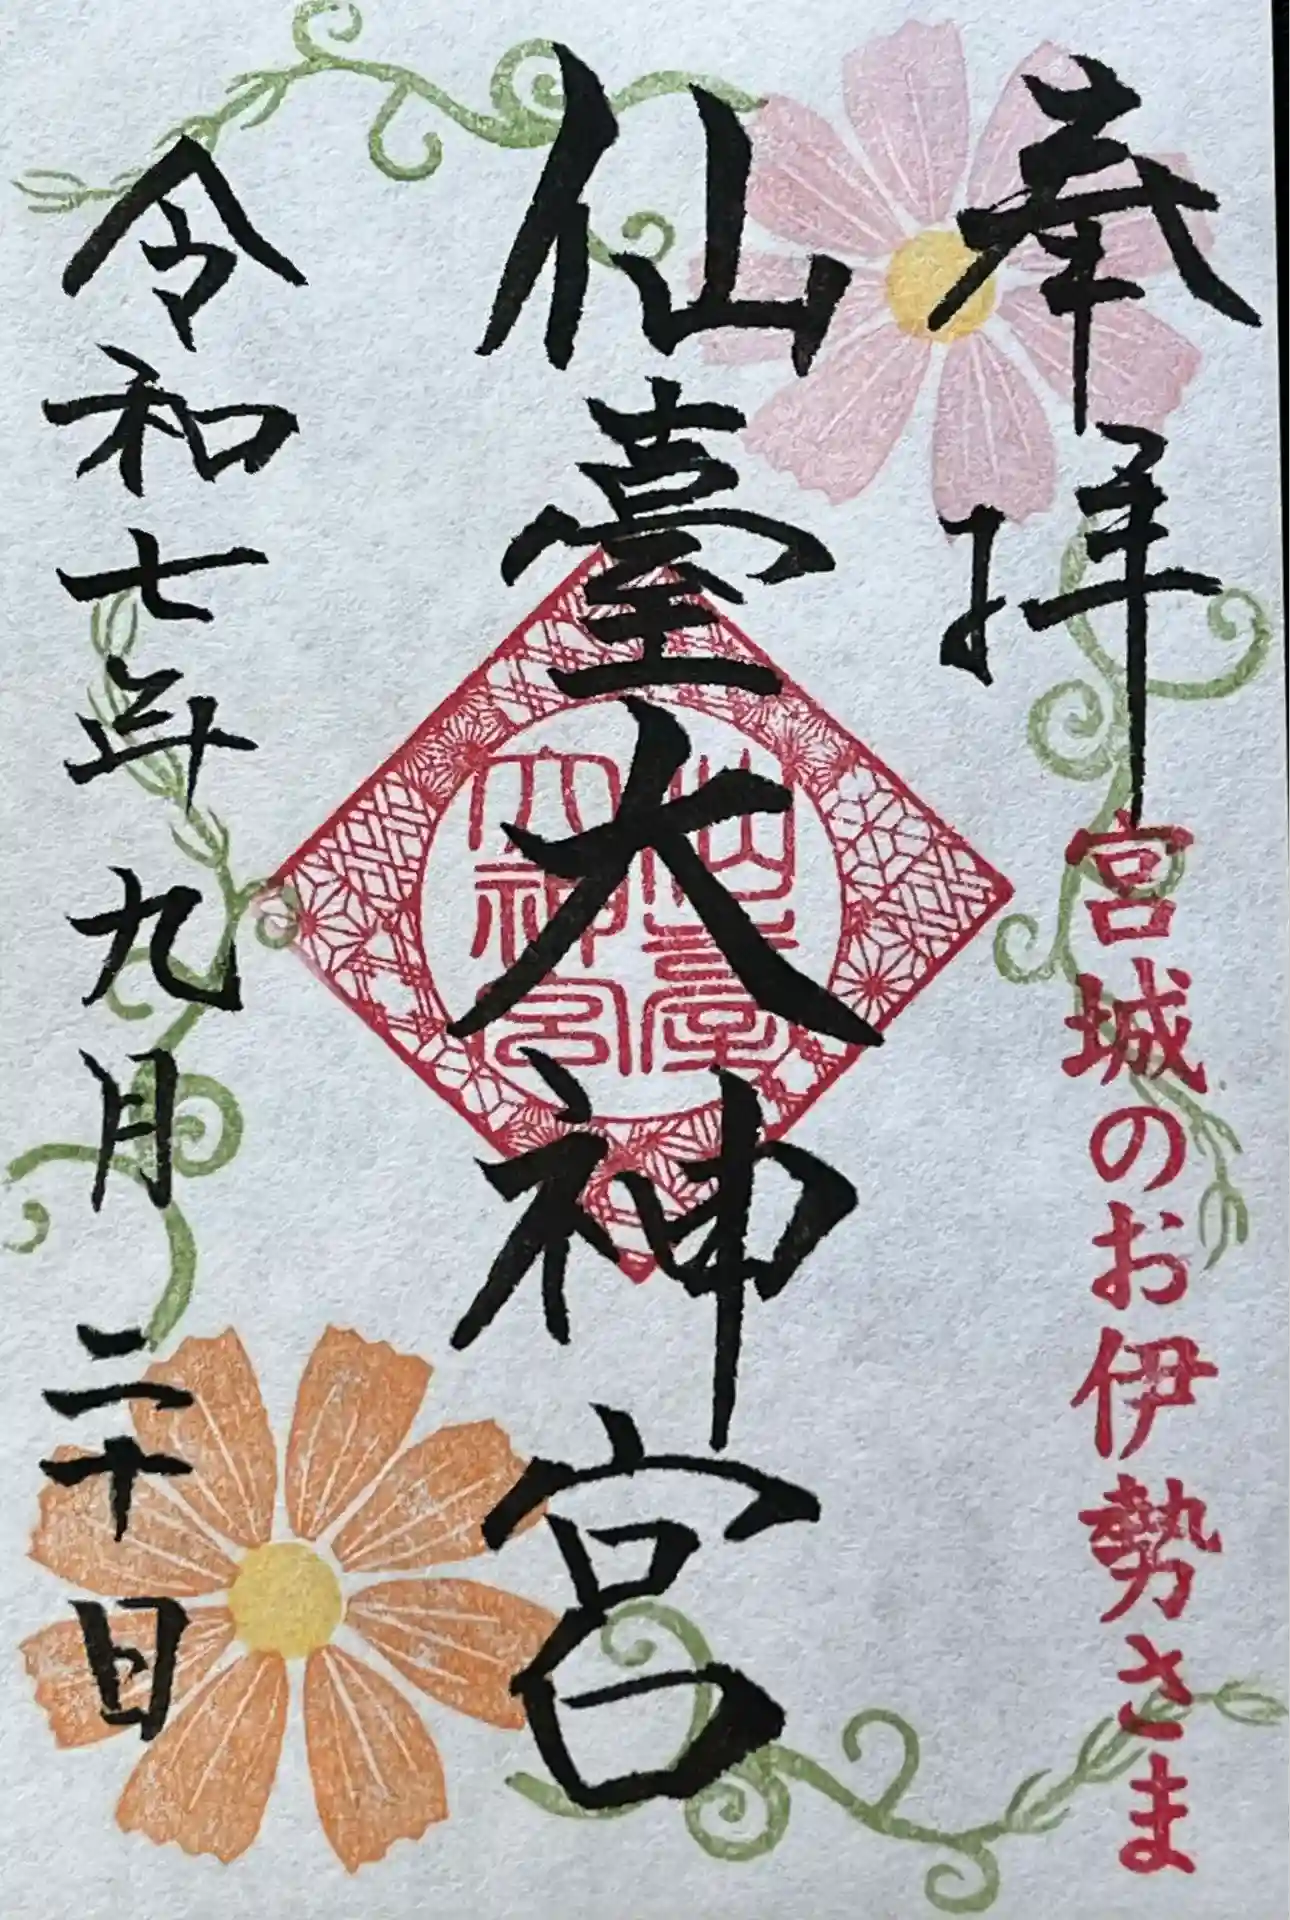 奉拝
宮城のお伊勢さま
仙臺大神宮
仙臺
大神宮
令和七年九月二十日